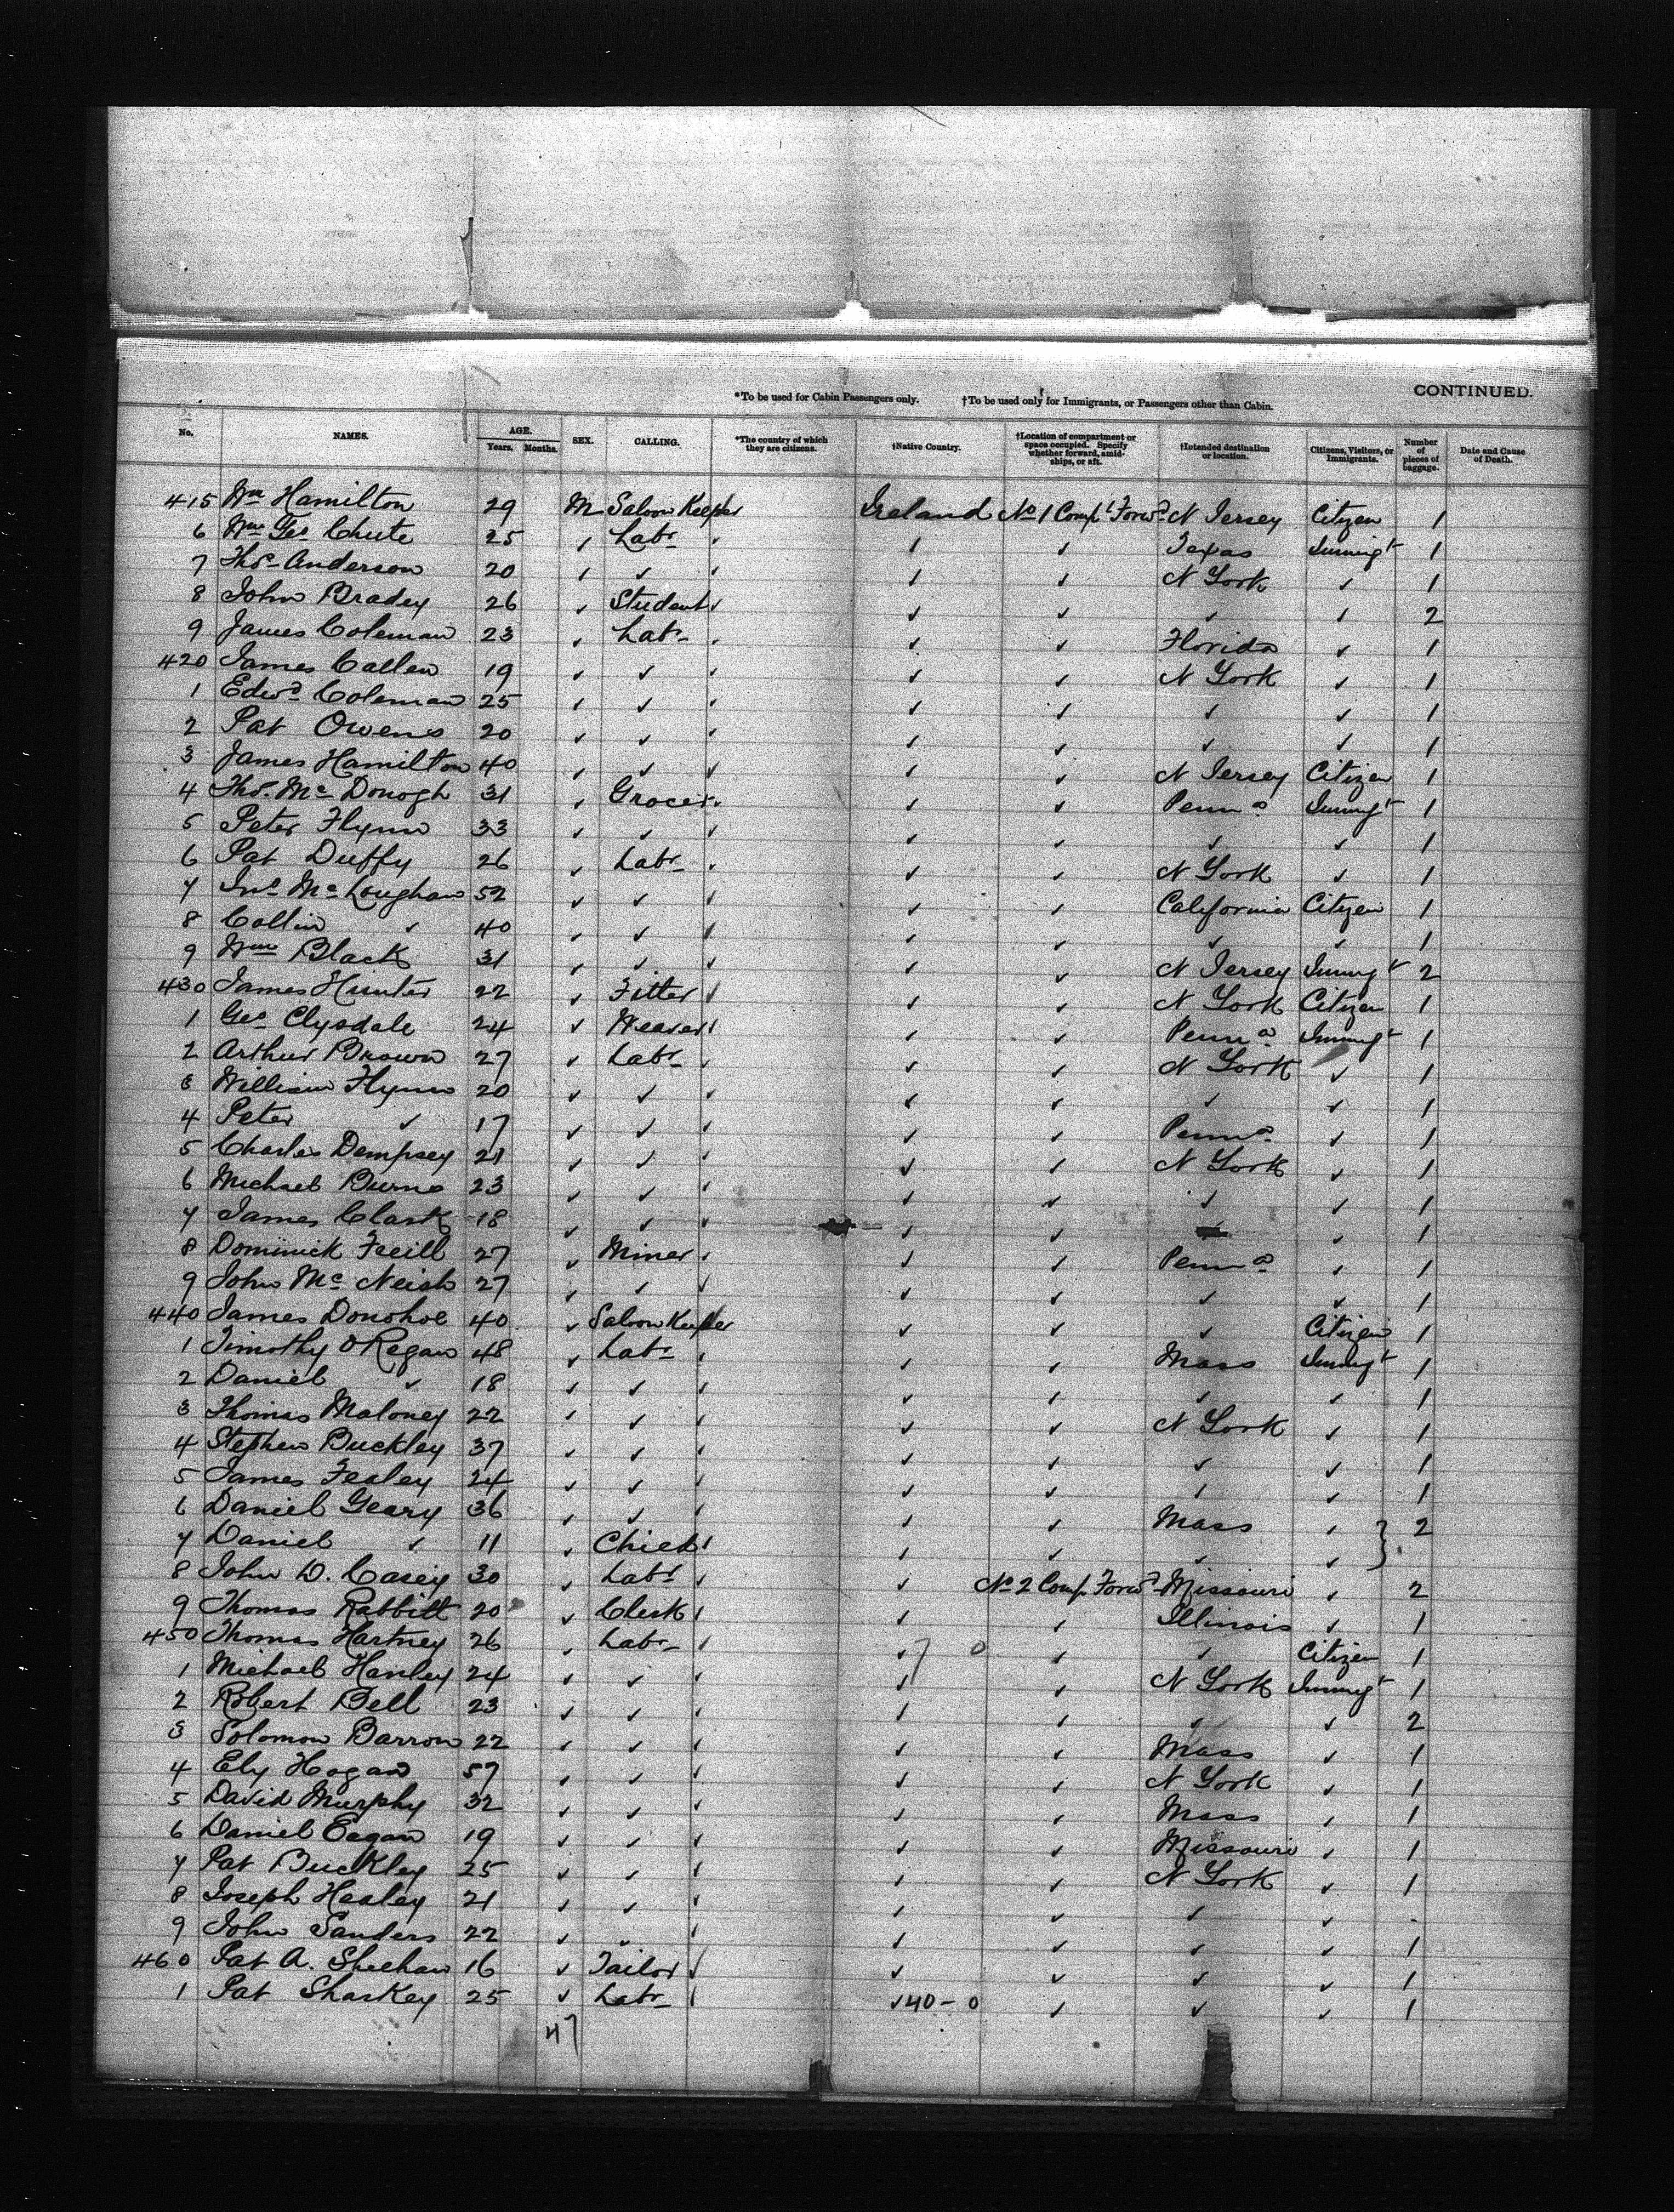 CONTINUED.
*To be used for Cabin Passengers only. †To be used only for Immigrants, or Passengers other than Cabin.
No. NAMES. AGE. Years. Months. SEX. CALLING. *The country of which they are citizens. †Native Country. †Location of compartment or space occupied. Specify whether forward, amidships, or aft. †Intended destination or location. Citizens, Visitors, or Immigrants. Number of pieces of baggage. Date and Cause of Death.
415 Wm Hamilton 29 M Saloon Keeper Ireland No 1 Compt Forwd N Jersey Citizen 1
6 Wm Geo Chute 25 ✓ Labr ✓ ✓ ✓ Texas Immigt 1
7 Thos Anderson 20 ✓ ✓ ✓ ✓ ✓ N York ✓ 1
8 John Bradey 26 ✓ Student ✓ ✓ ✓ ✓ ✓ 2
9 James Coleman 23 ✓ Labr ✓ ✓ ✓ Florida ✓ 1
420 James Callen 19 ✓ ✓ ✓ ✓ ✓ N York ✓ 1
1 Edwd Coleman 25 ✓ ✓ ✓ ✓ ✓ ✓ ✓ 1
2 Pat Owens 20 ✓ ✓ ✓ ✓ ✓ ✓ ✓ 1
3 James Hamilton 40 ✓ ✓ ✓ ✓ ✓ N Jersey Citizen 1
4 Thos. Mc Donogh 31 ✓ Grocer ✓ ✓ ✓ Penna Immigt 1
5 Peter Flynn 33 ✓ ✓ ✓ ✓ ✓ ✓ ✓ 1
6 Pat Duffy 26 ✓ Labr ✓ ✓ ✓ N York ✓ 1
7 Jno Mc Loughan 52 ✓ ✓ ✓ ✓ ✓ California Citizen 1
8 Collin ✓ 40 ✓ ✓ ✓ ✓ ✓ ✓ ✓ 1
9 Wm Black 31 ✓ ✓ ✓ ✓ ✓ N Jersey Immigt 2
430 James Hunter 22 ✓ Fitter ✓ ✓ ✓ N York Citizen 1
1 Geo Clysdale 24 ✓ Weaver ✓ ✓ ✓ Penna Immigt 1
2 Arthur Brown 27 ✓ Labr ✓ ✓ ✓ N York ✓ 1
3 William Flynn 20 ✓ ✓ ✓ ✓ ✓ ✓ ✓ 1
4 Peter ✓ 17 ✓ ✓ ✓ ✓ ✓ Penna ✓ 1
5 Charles Dempsey 21 ✓ ✓ ✓ ✓ ✓ N York ✓ 1
6 Michael Burns 23 ✓ ✓ ✓ ✓ ✓ ✓ ✓ 1
7 James Clark 18 ✓ ✓ ✓ ✓ ✓ ✓ 1
8 Dominick 27 ✓ Miner ✓ ✓ ✓ Penna ✓ 1
9 John Mc Neish 27 ✓ ✓ ✓ ✓ ✓ ✓ ✓ 1
440 James Donohoe 40 ✓ Saloon Keeper ✓ ✓ ✓ Citizen 1
1 Timothy O Regan 48 ✓ Labr ✓ ✓ ✓ Mass Immigt 1
2 Daniel ✓ 18 ✓ ✓ ✓ ✓ ✓ ✓ ✓ 1
3 Thomas Maloney 22 ✓ ✓ ✓ ✓ ✓ N York ✓ 1
4 Stephen Buckley 37 ✓ ✓ ✓ ✓ ✓ ✓ ✓ 1
5 James Fealey 24 ✓ ✓ ✓ ✓ ✓ ✓ ✓ 1
6 Daniel Geary 36 ✓ ✓ ✓ ✓ ✓ Mass ✓ } 2
7 Daniel ✓ 11 ✓ Child ✓ ✓ ✓ ✓ ✓
8 John D. Casey 30 ✓ Labr ✓ ✓ No 2 Comp. Forwd Missouri ✓ 2
9 Thomas Rabbitt 20 ✓ Clerk ✓ ✓ ✓ Illinois ✓ 1
450 Thomas Hartney 26 ✓ Labr ✓ ✓ 7 0 ✓ ✓ Citizen 1
1 Michael Hanley 24 ✓ ✓ ✓ ✓ ✓ N York Immigt 1
2 Robert Bell 23 ✓ ✓ ✓ ✓ ✓ ✓ ✓ 2
3 Solomon Barron 22 ✓ ✓ ✓ ✓ ✓ Mass ✓ 1
4 Ely Hogan 57 ✓ ✓ ✓ ✓ ✓ N York ✓ 1
5 David Murphy 32 ✓ ✓ ✓ ✓ ✓ Mass ✓ 1
6 Daniel Eagan 19 ✓ ✓ ✓ ✓ ✓ Missouri ✓ 1
7 Pat Buckley 25 ✓ ✓ ✓ ✓ ✓ N York ✓ 1
8 Joseph Healey 21 ✓ ✓ ✓ ✓ ✓ ✓ ✓
9 John Sanders 22 ✓ ✓ ✓ ✓ ✓ ✓ ✓ 1
460 Pat A. Sheehan 16 ✓ Tailor ✓ ✓ ✓ ✓ ✓ 1
1 Pat Sharkey 25 ✓ Labr ✓ ✓ 40-0 ✓ ✓ ✓ 1
47